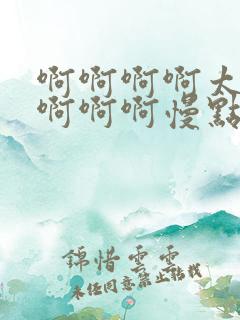 啊啊啊啊大
啊啊啊慢點
錦惜雲雲
未經同意禁止轉載